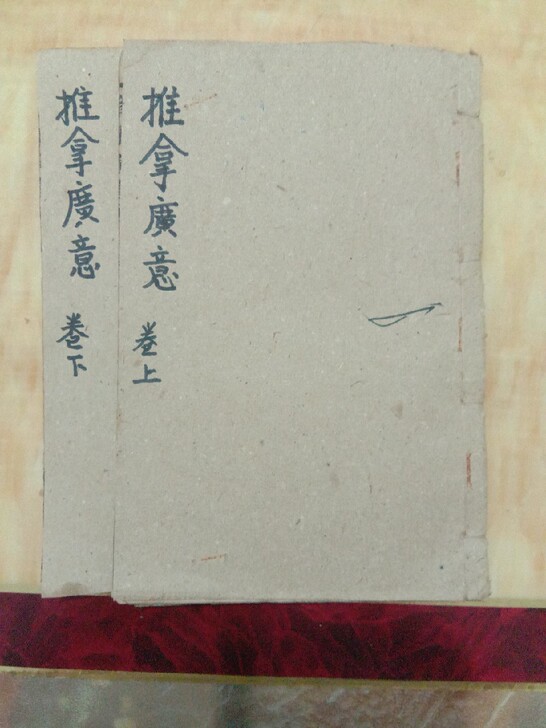 推拿廣意 卷上
推拿廣意 卷下